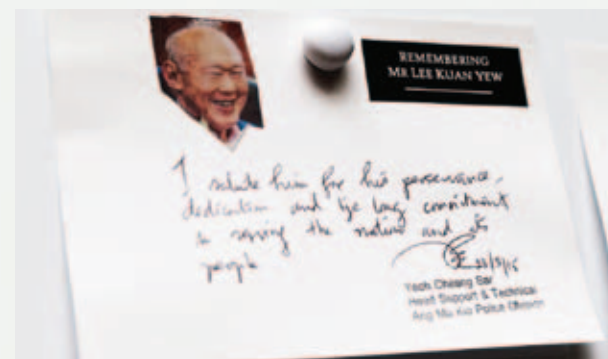 REMEMBERING
MR LEE KUAN YEW
I salute him for his perseverance,
dedication and life long commitment
in serving the nation and its
people
23/3/15
Yeoh Cheang Sai
Head Support & Technical
Ang Mo Kio Police Division